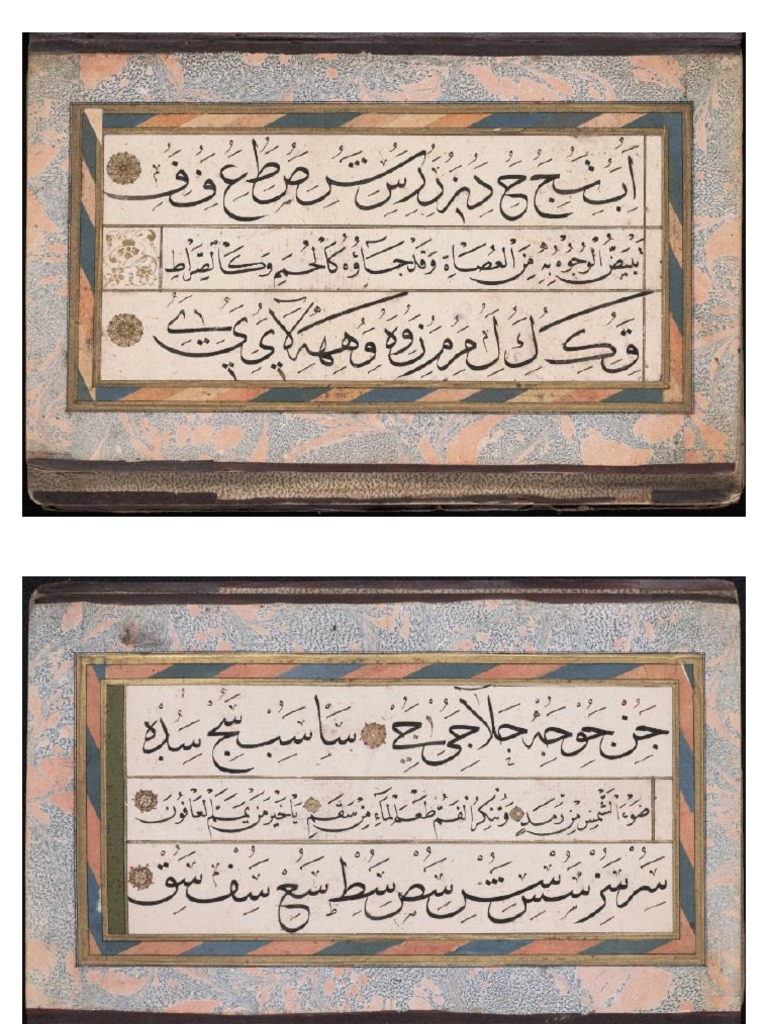 اَبُ ثِ جَ حُ دَ نِ رَ رِ سُ شِ صُ طَ عُ فَ فِ
تَبْيَضُّ الْوُجُوهُ بِهِ مِنَ الْعُصَاةِ وَقَدْ جَاؤُهُ كَالْحُمَمِ وَكَالصِّرَاطِ
قَ كُ كُ لَ مَ مِ نَ وَهُ وَ هِ هَهِ لَا يَ يَ
جَنْ جَوْ جِهْ جَلَا جَى جَے سَا سَبْ سَجْ سَدْ سَهْ
ضَوْءَ الشَّمْسِ مِنْ رَمَدٍ وَتُنْكِرُ الْفَمُ طَعْمَ الْمَاءِ مِنْ سَقَمٍ يَا خَيْرَ مَنْ يَمَّمَ الْعَافُونَ
سَرْ سَنْ سُسْ سَشْ سَصْ سَطْ سَعْ سَفْ سَقْ